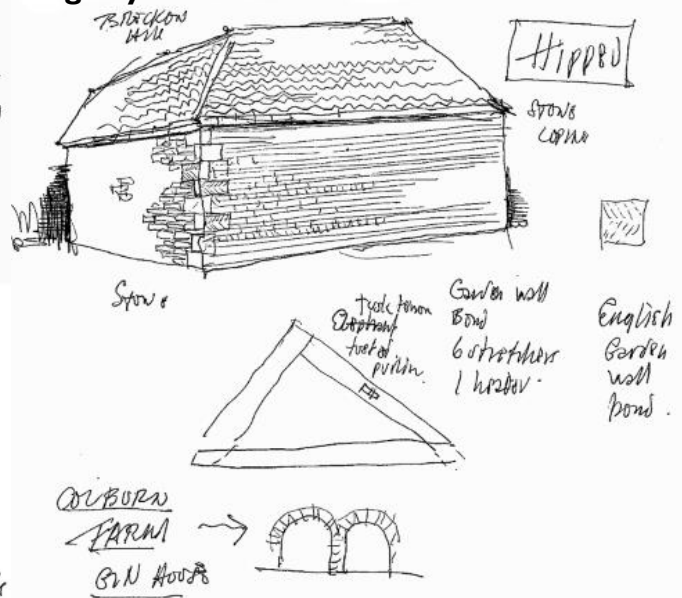 BRECKON
HILL
HIPPED
STONE
COPING
Stone
tusk tenon
Elephant
tusked
purlin.
Garden wall
Bond
6 stretchers
1 header.
English
Garden
wall
bond.
COLBURN
FARM
GIN HOUSE